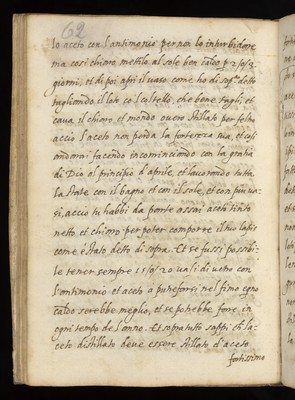 62
lo aceto con l'antimonio per non lo intorbidare
ma cosi chiaro mettilo al sole ben caldo p 2 / o / 3
giorni, et di poi apri il vaso come ho di sopra detto
tagliando il loto co'l coltello, che bene tagli, et
cava il chiaro, et mondo overo stillato per feltro
acciò l'aceto non perda la fortezza sua, et cosi
andarai facendo incominciando con la gratia
di Dio al principio d'aprile, et lavorando tutta
la state con il bagno et con il sole, et con più va=
si, acciò tu habbi da parte assai aceto tinto
netto et chiaro per poter comporre il tuo lapis
come è stato detto di sopra. Et se fussi possibi=
le tener sempre 15 / o / 20 vasi di vetro con
l'antimonio et aceto a putrefarsi nel fimo
caldo sarebbe meglio, et se potrebbe fare in
ogni tempo de l'anno. Et sopratutto sappi ch l'a=
ceto distillato deve essere stillato d'aceto
fortissimo